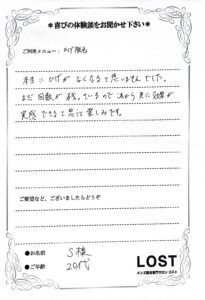 ＊喜びの体験談をお聞かせ下さい＊
ご利用メニュー：ひげ脱毛
本当にひげがなくなると思いませんでした。
まだ回数が残っているので これから更に効果が
実感できると思って楽しみです。
ご要望など、ございましたらどうぞ
●お名前 S様
●ご年齢 20代
LOST
メンズ脱毛専門サロン ロスト